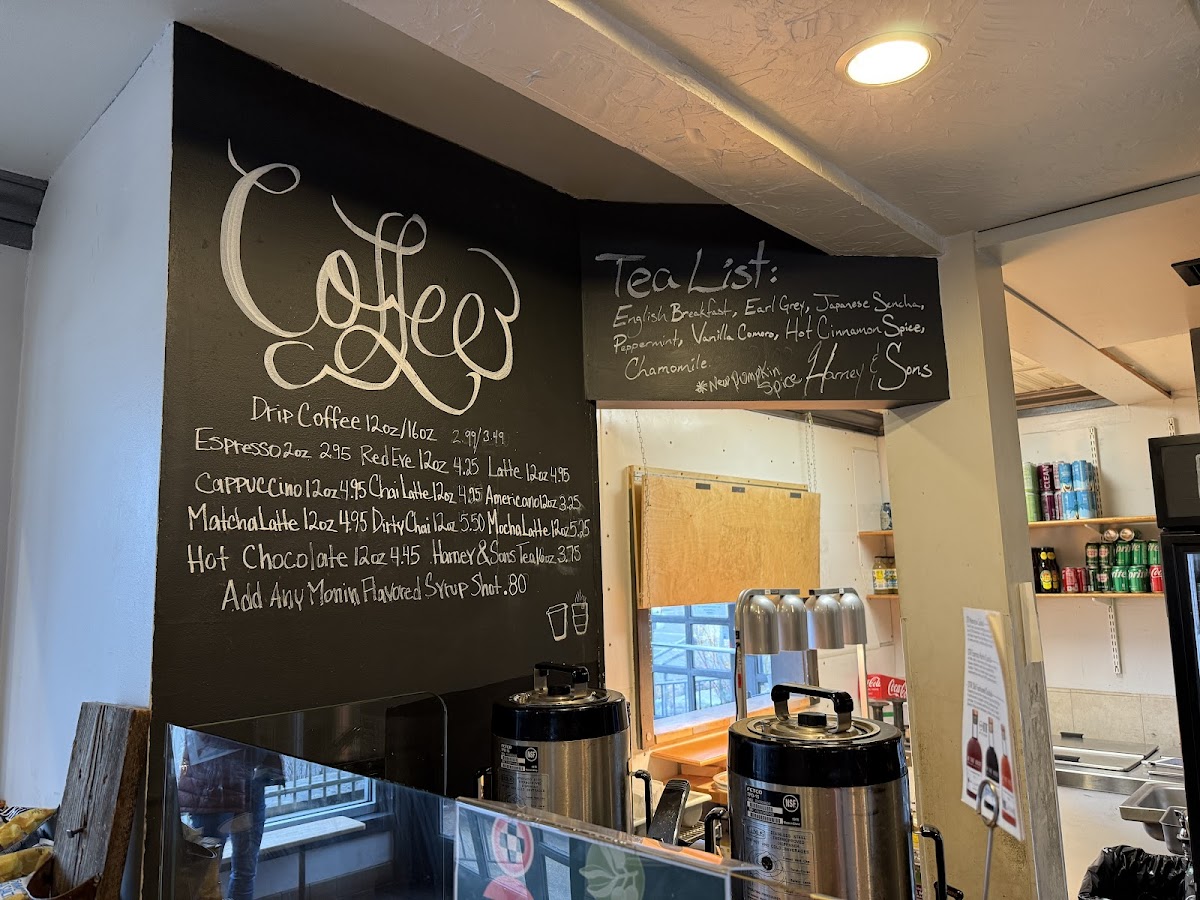 Coffee
Drip Coffee 12oz/16oz 2.99/3.49
Espresso 2oz 2.95 Red Eye 12oz 4.25 Latte 12oz 4.95
Cappuccino 12oz 4.95 Chai Latte 12oz 4.95 Americano 12oz 3.25
Matcha Latte 12oz 4.95 Dirty Chai 12oz 5.50 Mocha Latte 12oz 5.25
Hot Chocolate 12oz 4.45 Harney & Sons Tea 16oz 3.75
Add Any Monin Flavored Syrup Shot .80
Tea List:
English Breakfast, Earl Grey, Japanese Sencha,
Peppermint, Vanilla Comoro, Hot Cinnamon Spice,
Chamomile
*New Pumpkin Spice
Harney & Sons
FETCO
NSF
FETCO
NSF
Coca-Cola